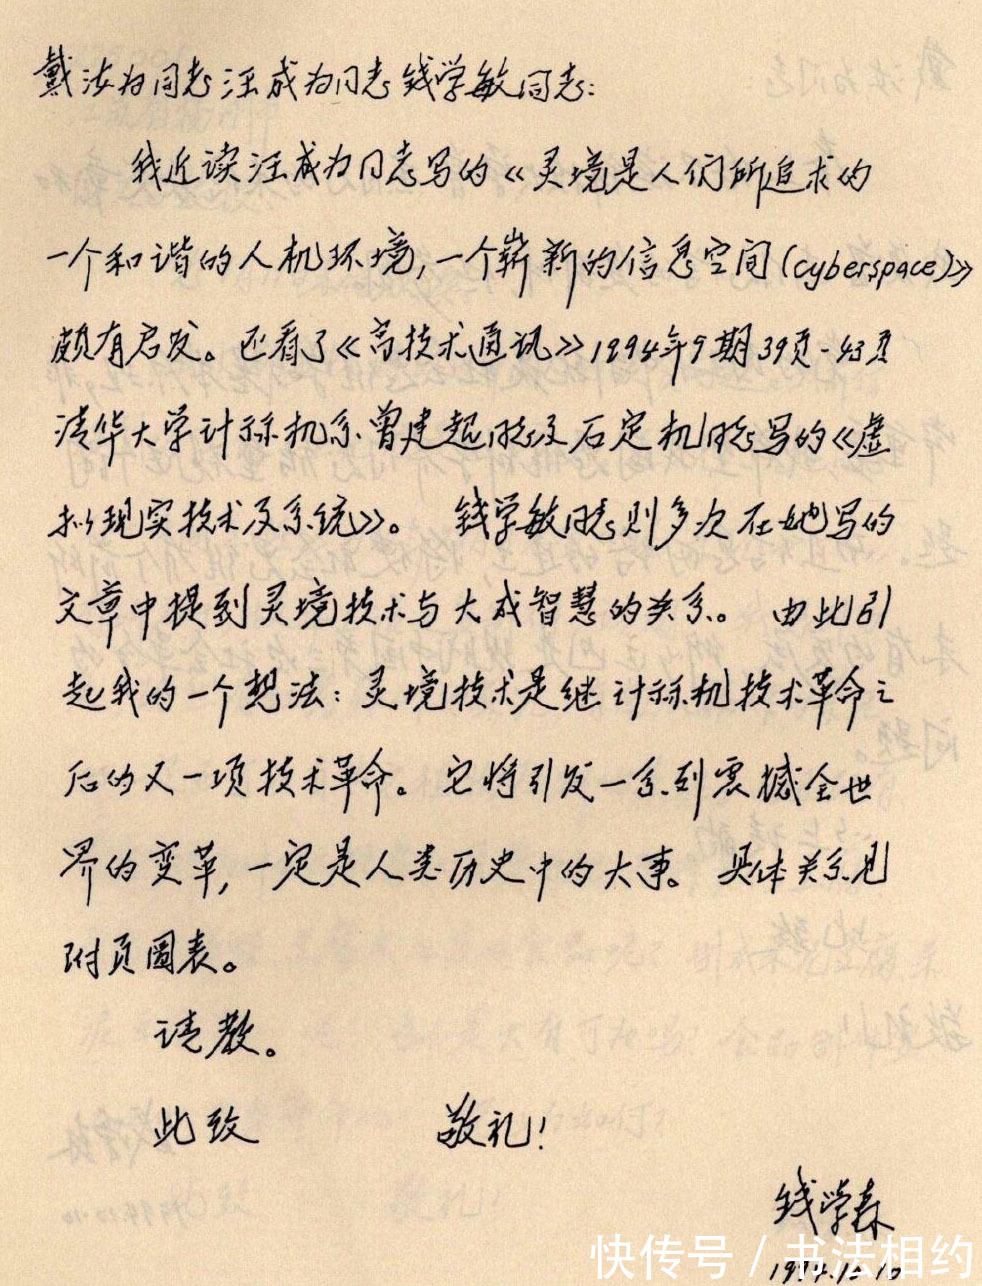 戴汝为同志汪成为同志钱学敏同志:
我近读汪成为同志写的《灵境是人们所追求的
一个和谐的人机环境,一个崭新的信息空间(cyberspace)》
颇有启发。还看了《高技术通讯》1994年9期39页-43页
清华大学计祘机系曾建超同志及石定机同志写的《虚
拟现实技术及系统》。 钱学敏同志则多次在她写的
文章中提到灵境技术与大成智慧的关系。 由此引
起我的一个想法:灵境技术是继计祘机技术革命之
后的又一项技术革命。它将引发一系列震撼全世
界的变革,一定是人类历史中的大事。具体关系见
附页圖表。
请教。
此致 敬礼!
钱学森
1994.10.10
快传号/书法相约